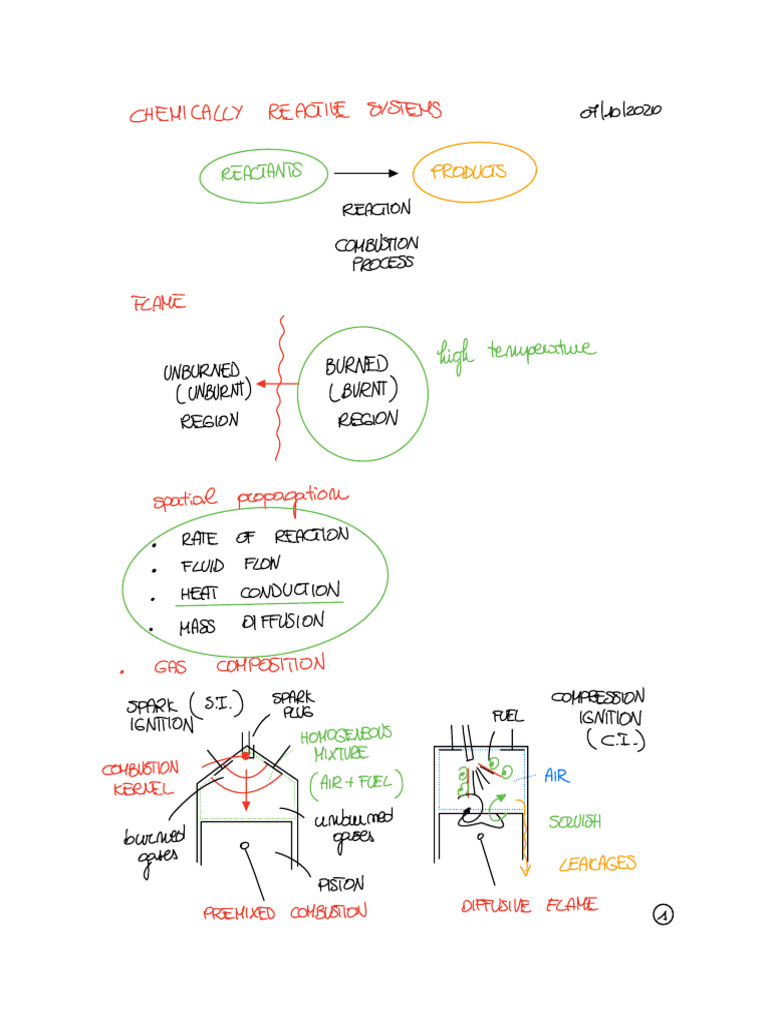 CHEMICALLY REACTIVE SYSTEMS
07/10/2020
REACTANTS
PRODUCTS
REACTION
COMBUSTION
PROCESS
FLAME
UNBURNED
(UNBURNT)
REGION
BURNED
(BURNT)
REGION
high temperature
spatial propagation
• RATE OF REACTION
• FLUID FLOW
• HEAT CONDUCTION
• MASS DIFFUSION
• GAS COMPOSITION
SPARK (S.I.)
IGNITION
SPARK
PLUG
HOMOGENEOUS
MIXTURE
(AIR + FUEL)
COMBUSTION
KERNEL
burned
gases
unburned
gases
PISTON
PREMIXED COMBUSTION
COMPRESSION
IGNITION
(C.I.)
FUEL
AIR
SQUISH
LEAKAGES
DIFFUSIVE FLAME
1